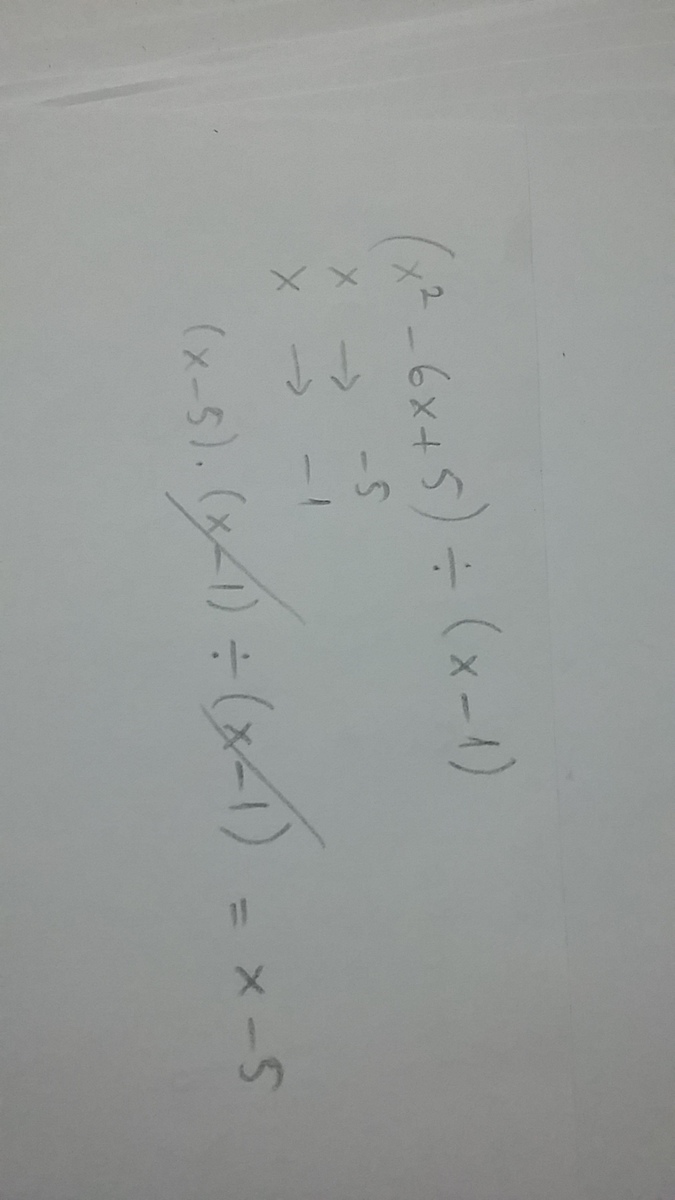 (x² - 6x + 5) ÷ (x - 1)
x → -5
x → -1
(x - 5) · (x - 1) ÷ (x - 1) = x - 5